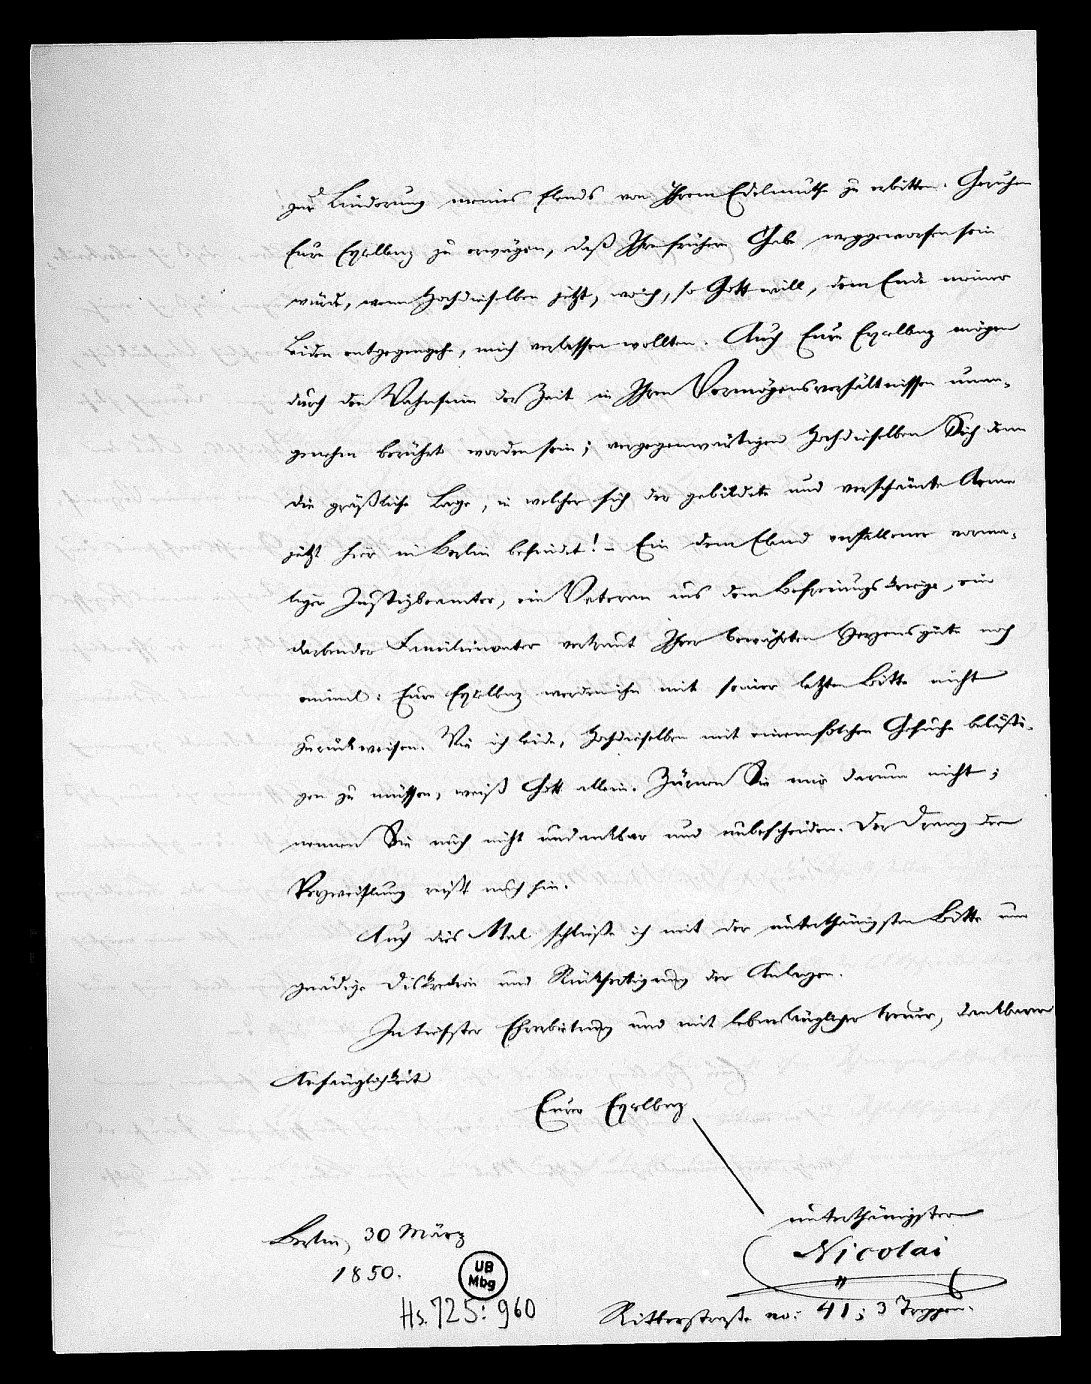 zur Linderung meines Elends von Ihrem Edelmuthe zu erbitten. Geruhen
Eure Exzellenz zu erwägen, daß Ihre frühere Gabe weggeworfen sein
würde, wenn Hochdieselben jetzt, wo ich, so Gott will, dem Ende meiner
Leiden entgegengehe, mich verlassen wollten. Auch Eure Exzellenz mögen
durch den Wahnsinn der Zeit in Ihren Vermögensverhältnissen unan-
genehm berührt worden sein; vergegenwärtigen Hochdieselben Sich denn
die gräßliche Lage, in welcher sich der gebildete und verschämte Arme
jetzt hier in Berlin befindet! – Ein dem Elend verfallener vorma-
liger Justizbeamter, ein Veteran aus dem Befreiungskriege, ein
darbender Familienvater vertraut Ihrer bewährten Herzensgüte noch
einmal: Eure Exzellenz werden ihn mit seiner letzten Bitte nicht
zurückweisen. Wie ich leide, Hochdieselben mit einem solchen Gesuche belästi-
gen zu müssen, weiß Gott allein. Zürnen Sie mir darum nicht;
nennen Sie mich nicht undankbar und unbescheiden. Der Drang der
Verzweiflung reißt mich hin.
Auch dies Mal schließe ich mit der unterthänigsten Bitte um
gnädige Diskretion und Rückfertigung der Anlagen.
In tiefster Ehrerbietung und mit lebenslänglicher treuer, dankbarer
Anhänglichkeit
Eurer Exzellenz
unterthänigster
Nicolai
Berlin, 30 März
1850.
Ritterstraße no: 41; 3 Treppen.
UB
Mbg
Hs. 725: 960